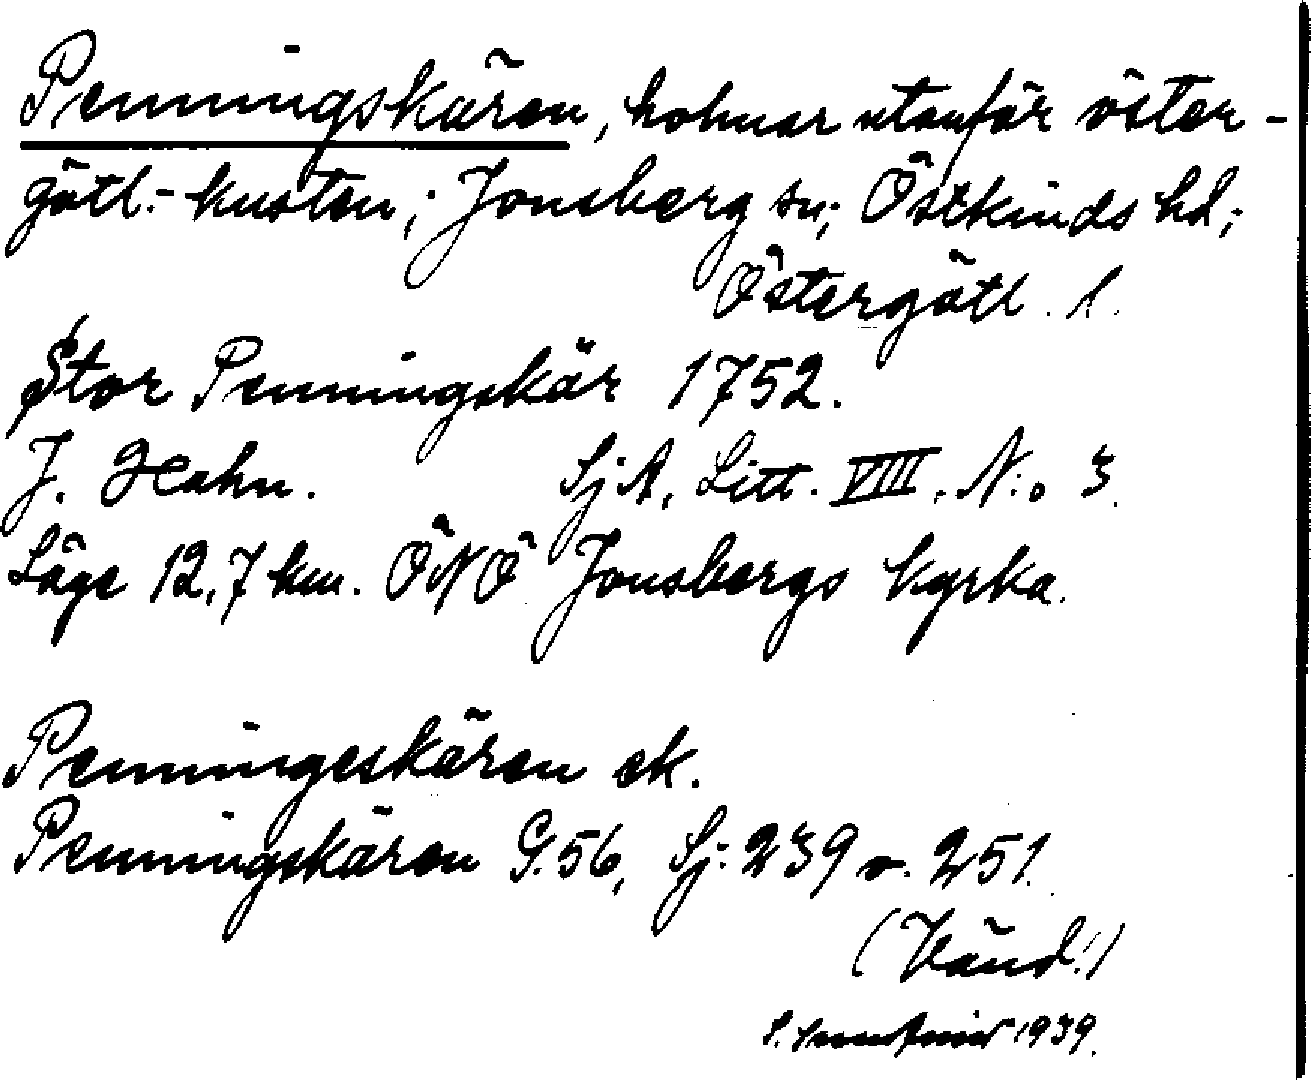 Penningskären, holmar utanför öster-
götl.-kusten; Jonsberg sn; Östkinds hd;
Östergötl. l.
Stor Penningskär 1752.
J. Hahn. SjA, Litt. VIII. N:o 3.
Läge 12,7 km. ÖNÖ Jonsbergs kyrka.
Penningeskären ek.
Penningskären G. 56, Sj: 239 o. 251.
(Vänd!)
1939.